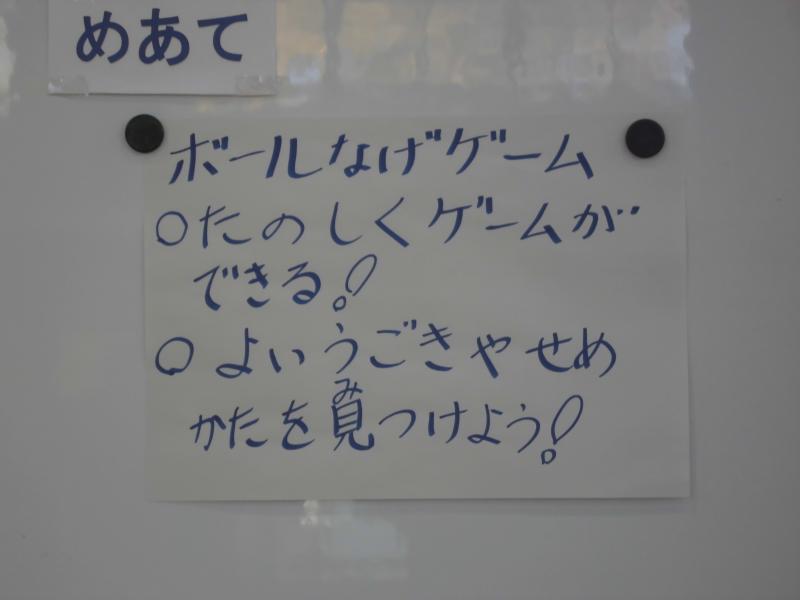 めあて
ボールなげゲーム
○たのしくゲームが
できる!
○よいうごきやせめ
み
かたを見つけよう!